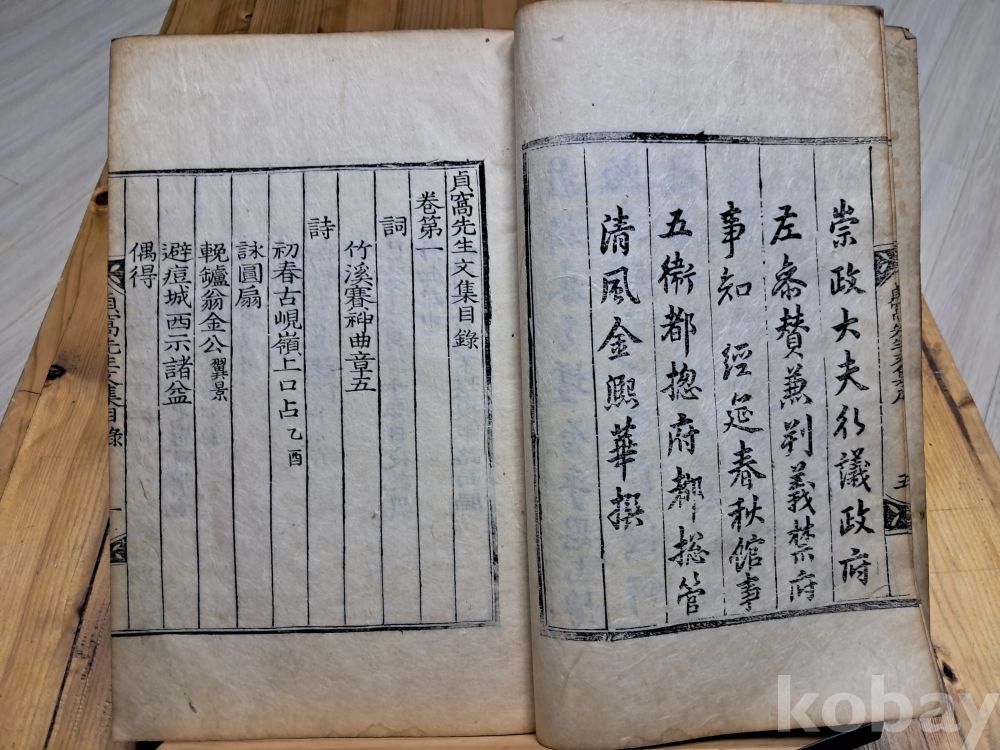 崇政大夫行議政府
左參贊兼判義禁府
事知 經筵春秋館事
五衛都摠府都摠管
清風金熙華撰
五
貞窩先生文集目錄
卷第一
詞
竹溪賽神曲章五
詩
初春古峴嶺上口占 乙酉
詠圓扇
輓罏翁金公 翼景
避痘城西示諸益
偶得
貞窩先生文集目錄
一
kobay